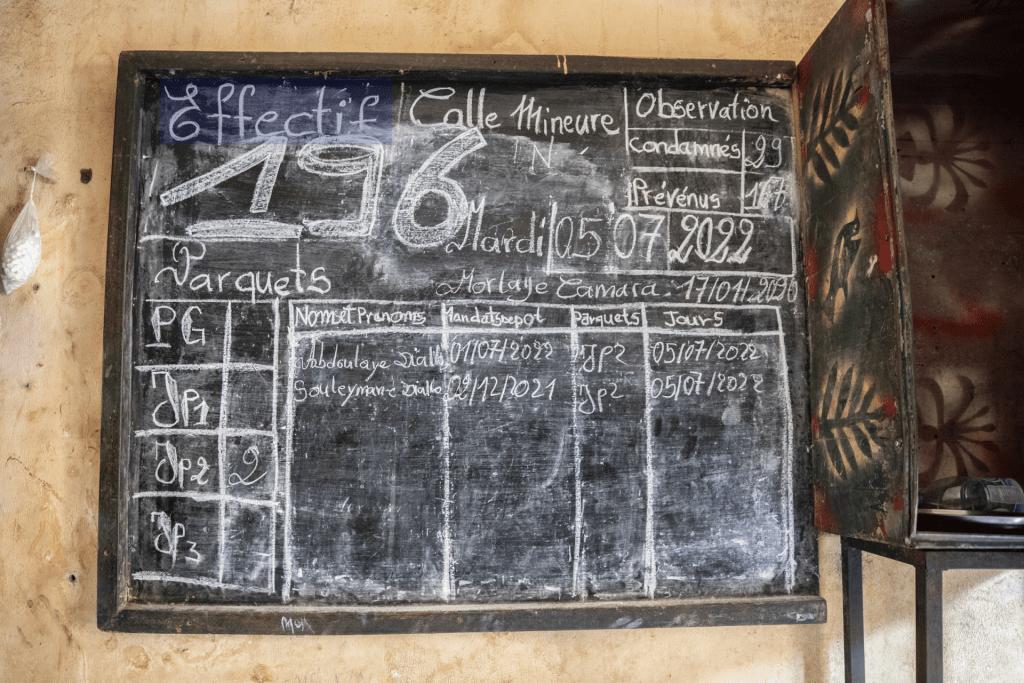 Effectif Celle Mineure Observation
196 N Condamnés 29
Prévenus 167
Mardi 05 07 2022
Parquets Morlaye Camara 17/01/2026
PG Noms et Prénoms Mandats Depot Parquets Jours
Abdoulaye Diallo 01/07/2022 JP2 05/07/2022
JP1 Souleymane Diallo 02/12/2021 JP2 05/07/2022
JP2 2
JP3